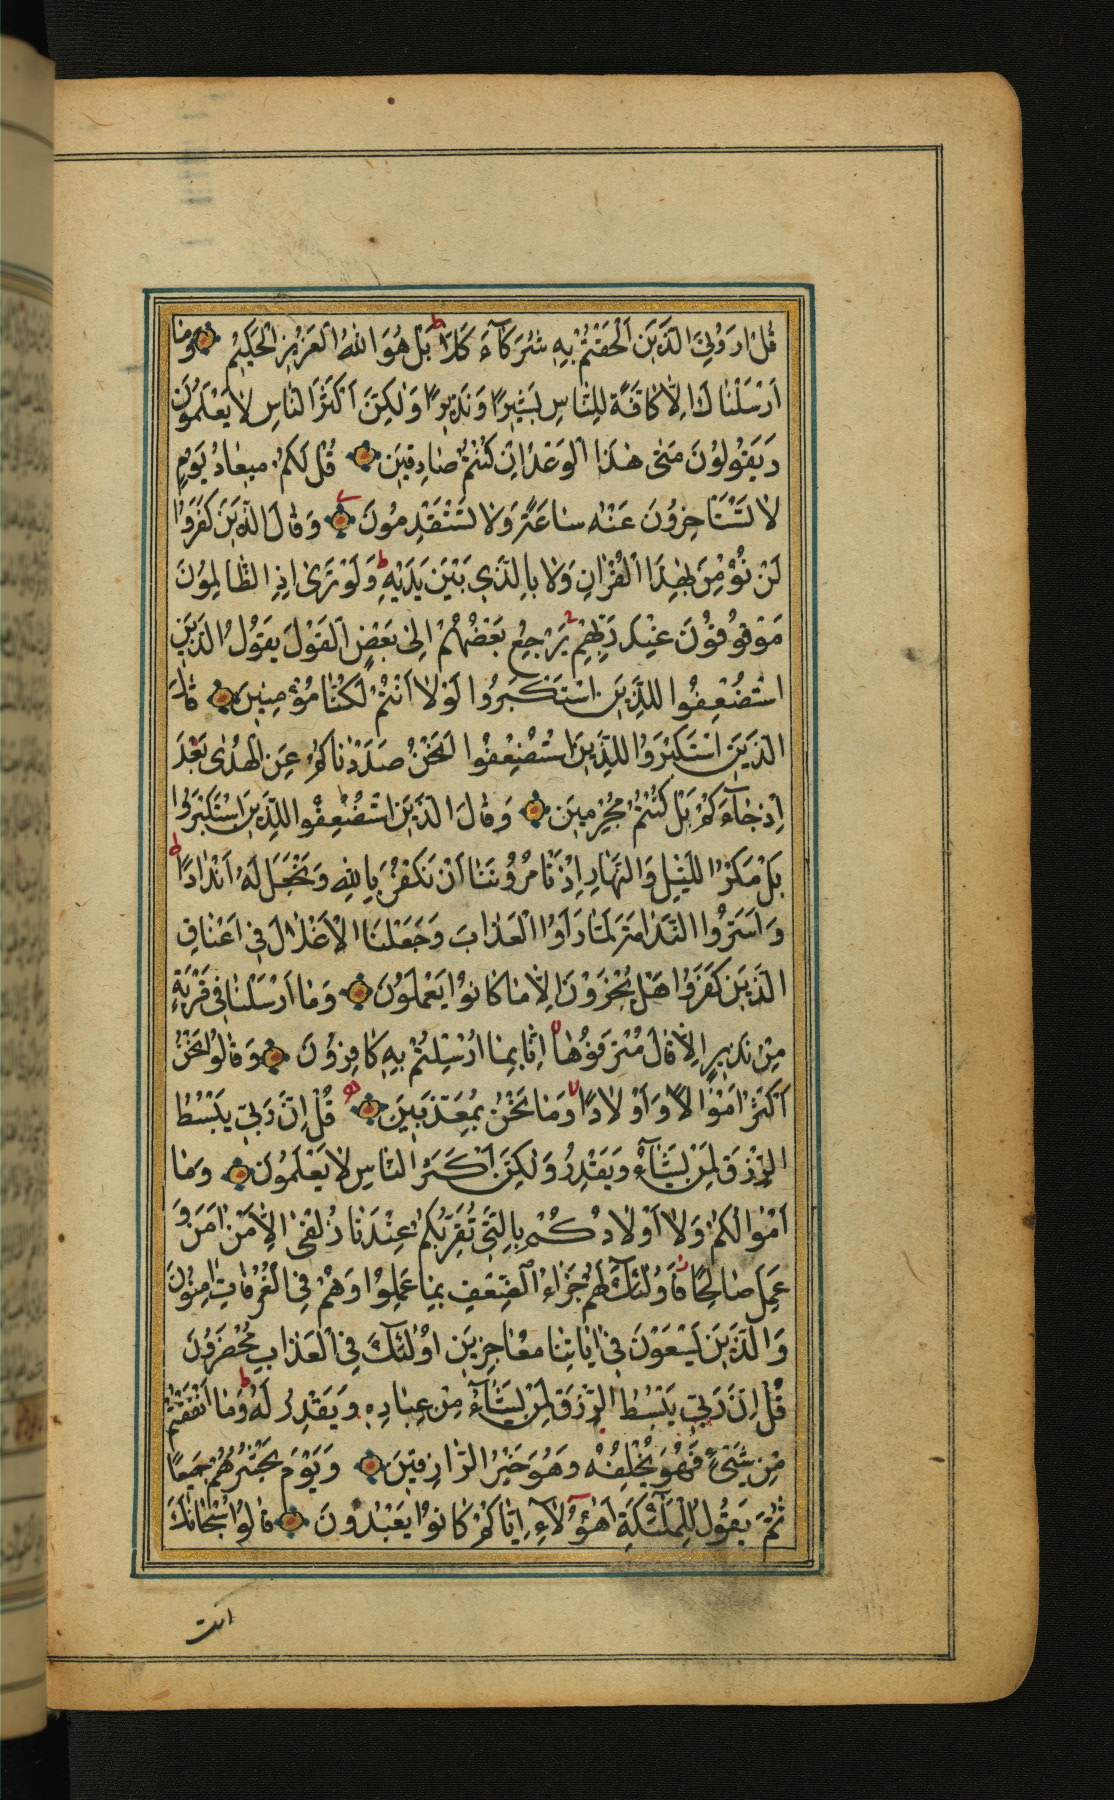 قُلْ اَرُونِيَ الَّذَينَ اَلْحَقْتُمْ بِهِ شُرَكَآءَ كَلَّا بَلْ هُوَ اللهُ الْعَزِيزُ الْحَكَيمُ وَمٰا
اَرْسَلْنٰاكَ اِلّٰا كٰافَّةً لِلنّٰاسِ بَشِيرًا وَنَذِيرًا وَلٰكِنَّ اَكْثَرَ النّٰاسِ لٰا يَعْلَمُونَ
وَيَقُولُونَ مَتٰى هٰذَا الْوَعْدُ اِنْ كُنْتُمْ صٰادِقِينَ قُلْ لَكُمْ مِيعٰادُ يَوْمٍ
لٰا تَسْتَأخِرُونَ عَنْهُ سٰاعَةً وَلٰا تَسْتَقْدِمُونَ وَقٰالَ الَّذَينَ كَفَرُوا
لَنْ نُؤْمِنَ بِهٰذَا الْقُرْاٰنِ وَلٰا بِالَّذِي بَيْنَ يَدَيْهِ وَلَوْ تَرٰى اِذِ الظّٰالِمُونَ
مَوْقُوفُونَ عِنْدَ رَبِّهِمْ يَرْجِعُ بَعْضُهُمْ اِلٰى بَعْضٍ الْقَوْلَ يَقُولُ الَّذَينَ
اسْتُضْعِفُوا لِلَّذِينَ اسْتَكْبَرُوا لَوْلٰا اَنْتُمْ لَكُنّٰا مُؤْمِنِينَ قٰالَ
الَّذَينَ اسْتَكْبَرُوا لِلَّذِينَ اسْتُضْعِفُوا اَنَحْنُ صَدَدْنٰاكُمْ عَنِ الْهُدٰى بَعْدَ
اِذْ جٰآءَكُمْ بَلْ كُنْتُمْ مُجْرِمِينَ وَقٰالَ الَّذَينَ اسْتُضْعِفُوا لِلَّذِينَ اسْتَكْبَرُوا
بَلْ مَكْرُ اللَّيْلِ وَالنَّهٰارِ اِذْ تَأْمُرُونَنٰا اَنْ نَكْفُرَ بِاللهِ وَنَجْعَلَ لَهُ اَنْدٰادًا
وَاَسَرُّوا النَّدٰامَةَ لَمّٰا رَاَوُا الْعَذٰابَ وَجَعَلْنَا الْاَغْلٰالَ فِي اَعْنٰاقِ
الَّذَينَ كَفَرُوا هَلْ يُجْزَوْنَ اِلّٰا مٰا كٰانُوا يَعْمَلُونَ وَمٰا اَرْسَلْنٰا فِي قَرْيَةٍ
مِنْ نَذِيرٍ اِلّٰا قٰالَ مُتْرَفُوهٰا اِنّٰا بِمٰا اُرْسِلْتُمْ بِهِ كٰافِرُونَ وَقٰالُوا نَحْنُ
اَكْثَرُ اَمْوٰالًا وَاَوْلٰادًا وَمٰا نَحْنُ بِمُعَذَّبِينَ قُلْ اِنَّ رَبِّي يَبْسُطُ
الرِّزْقَ لِمَنْ يَشٰآءُ وَيَقْدِرُ وَلٰكِنَّ اَكْثَرَ النّٰاسِ لٰا يَعْلَمُونَ وَمٰا
اَمْوٰالُكُمْ وَلٰا اَوْلٰادُكُمْ بِالَّتِي تُقَرِّبُكُمْ عِنْدَنٰا زُلْفٰى اِلّٰا مَنْ اٰمَنَ وَ
عَمِلَ صٰالِحًا فَاُولٰئِكَ لَهُمْ جَزٰاءُ الضِّعْفِ بِمٰا عَمِلُوا وَهُمْ فِي الْغُرُفٰاتِ اٰمِنُونَ
وَالَّذَينَ يَسْعَوْنَ فِي اٰيٰاتِنٰا مُعٰاجِزِينَ اُولٰئِكَ فِي الْعَذٰابِ مُحْضَرُونَ
قُلْ اِنَّ رَبِّي يَبْسُطُ الرِّزْقَ لِمَنْ يَشٰآءُ مِنْ عِبٰادِهِ وَيَقْدِرُ لَهُ وَمٰا اَنْفَقْتُمْ
مِنْ شَيْءٍ فَهُوَ يُخْلِفُهُ وَهُوَ خَيْرُ الرّٰازِقِينَ وَيَوْمَ يَحْشُرُهُمْ جَمِيعًا
ثُمَّ يَقُولُ لِلْمَلٰٓئِكَةِ اَهٰؤُلٰآءِ اِيّٰاكُمْ كٰانُوا يَعْبُدُونَ قٰالُوا سُبْحٰانَكَ
انت